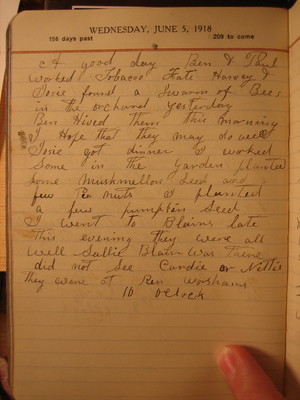 WEDNESDAY, JUNE 5, 1918
156 days past 209 to come
A good day Ben & Paul
worked Tobacco Kate Harvey &
Josie found a Swarm of Bees
in the orchard yesterday
Ben Hived them this morning
I Hope that they may do well
Josie got dinner I worked
Some in the Garden planted
some Muskmellon Seed and
few Pea nuts I planted
a few pumpkin Seed
I went to Blains late
This evening they were all
well Sallie Blain was there
did not See Candie or Nettie
They were at Ben
10 Oclock